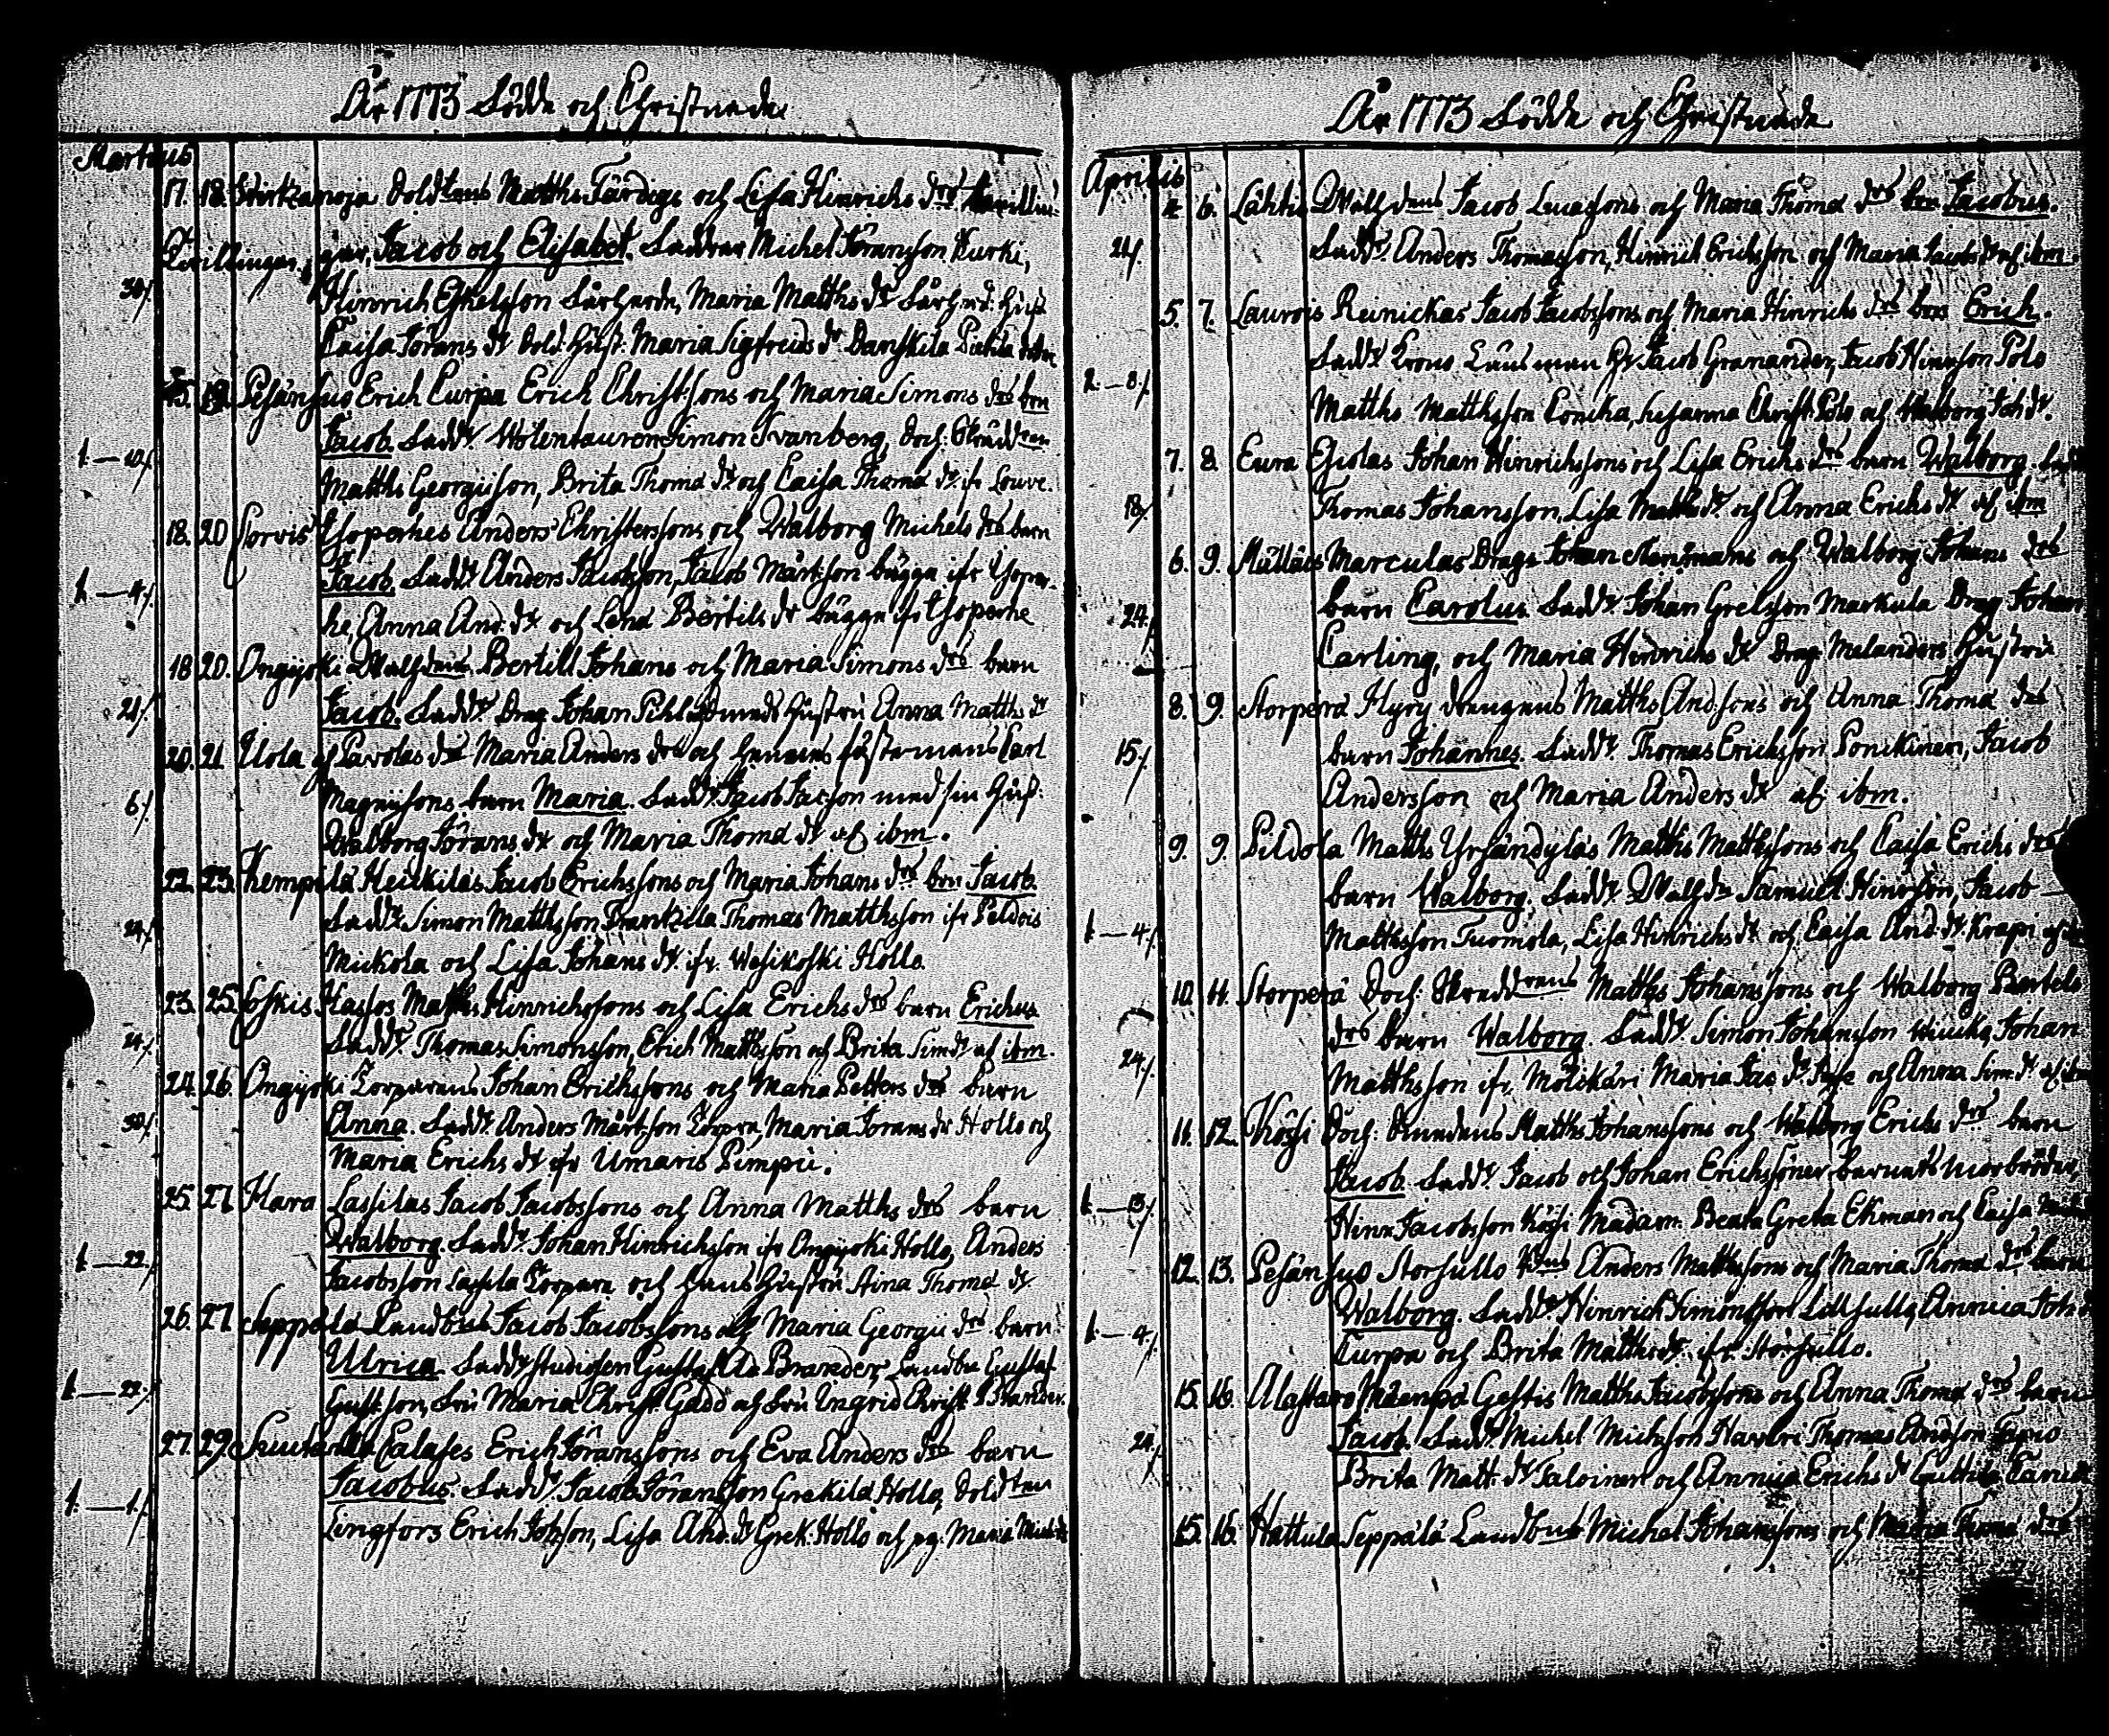 År 1773 Födde och Christnade
Martius
17. 18. Wirkanoja Soldtens Matths Färdigs och Lisa Hinrichs drs twillin-
Twillingar. gar, Jacob och Elisabet. Faddrar Michel Göransson Kurki,
30/. Hinrich Eskelsson Maria Matths dr
Caisa Görans dr Sold. hust. Maria Sigfreds dr Danskila
15. 19. Pesänsuo Erich Curpa Erich Christ.sons och Maria Simons drs brn
Jacob. Fadd. Simon Svanberg, Soch: Skrädd
1.—10/. Matths Georgiison, Brita Thoma dr och Caisa Thoma dr. ifr
18. 20 Sorvis Ylopernes Anders Christerssons och Walborg Michels drs barn
1.—4/. Jacob. Fadd. Anders Jacobsson, Jacob Märtsson bägge ifr
Anna And. dr och Lena Bertils dr bägge ifr
18 20. Ongijoki Bertill Johans och Maria Simons drs barn
21/. Jacob. Fadd. Dreg Johan hustru Anna Matths dr
20. 21. Ilola Maria Anders drs och Carl
6/. Magniisons barn Maria. Fadd. Jacob Jacsson med sin hust:
Walborg Görans dr och Maria Thoma dr af ibm.
22. 23. Kempilä Heickilas Jacob Erichssons och Maria Johans drs brn Jacob.
24/. Fadd. Simon Matthsson Franckila Thomas Matthsson ifr Peldois
Mickola och Lisa Johans dr. ifr. Wesikoski Hollo.
23. 25. Loskis Hassos Matths Hinrichssons och Lisa Erichs drs barn Erichus
24/. Fadd. Thomas Simonsson, Erich Matthsson och Brita Sim dr af ibm.
24. 26. Ongijoki Torparens Johan Erichssons och Maria Petters drs barn
30/. Anna. Fadd. Anders Märtsson Torpare, Maria Görans dr Hollo och
Maria Erichs dr ifr Umaris Pimpu.
25 27. Hara Lassilas Jacob Jacobssons och Anna Matths drs barn
1.—22/. Walborg. Fadd. Johan Hinrichsson ifr Ongijoki Hollo, Anders
Jacobsson Lassila Torpare och hans hustru Aina Thoma dr
26. 27. Seppälä Landbns Jacob Jacobssons och Maria Georgii drs barn
1.—22/. Ulrica. Fadd. Studiosen Gustaf Brander, Landbn Gustaf
Gustsson, Fru Maria Christ. Gadd och Fru Ingrid Christ. Brander.
27. 29. Suutarila Calases Erich Göranssons och Eva Anders drs barn
1.—1./. Jacobus. Fadd. Jacob Göransson Grekilä Hollo, Soldten
Lingfors Erich Johsson, Lisa And. dr Grek. Hollo och pg. Maria Mich. dr

År 1773 Födde och Christnade
Aprilis
4. 6. Lähtis Jacob Lucassons och Maria Thoma drs brn Jacobus.
24/. Fadd. Anders Thomasson, Hinrich Erichsson och Maria Jacobs dr af ibm.
5. 7. Laurois Reinickas Jacob Jacobssons och Maria Hinrichs drs brn Erich.
Fadd. Crono Länsman Hr Jacob Granander, Jacob Hinrsson Polo
2.—8/. Matths Matthsson Concka, Susanna Christ. Polo och Walborg Joh dr.
7. 8. Eura Eskolas Johan Hinrichssons och Lisa Erichs drs barn Walborg.
18/. Thomas Johansson, Lisa Matths dr och Anna Erichs dr af ibm
6. 9. Mälläis Marculas Dregs Johan och Walborg Johans drs
24. barn Carolus. Fadd. Johan Grelsson Markula Dreg Johan
Carling, och Maria Hinrichs dr Dreg Melanders hustru
8. 9. Storperä Hyry drengens Matths And:sons och Anna Thoma drs
15/. barn Johannes. Fadd. Thomas Erichsson Ponckinen, Jacob
Andersson och Maria Anders dr af ibm.
9. 9. Pildola Matths Yrjändyläs Matths Matthssons och Caisa Erichs drs
barn Walborg. Fadd. Samuel Hinrsson, Jacob
1.—4/. Matthsson Tuomola, Lisa Hinrichs dr och Caisa And. dr Krapi
10. 11. Storperä Soch: Skräddrens Matths Johanssons och Walborg Bertels
drs barn Walborg. Fadd. Simon Johansson Johan
24/. Matthsson ifr. Mölckäri Maria Jac dr och Anna Sim. dr af ibm
11. 12. Kögi Soch: Matths Johanssons och Walborg Erichs drs barn
Jacob. Fadd. Jacob och Johan Erichssöner barnets morbröder,
1.—13/. Hinr Jacobsson Kögi Madam. Beata Greta Ekman och Caisa
12. 13. Pesänsuo Storsullo Anders Matthssons och Maria Thoma drs barn
1.—4/. Walborg. Fadd. Hinrich Simonsson Lillsullo, Annica Joh d
Curpa och Brita Matths dr. ifr. Storsullo.
15. 16. Alastaro Mäenpä Gestis Matths Jacobssons och Anna Thoma drs barn
24/. Jacob. Fadd. Michel Michsson Haveri Thomas Andsson
Brita Matt. dr Taloinen och Annica Erichs dr
15. 16. Hattula Seppälä Landbns Michel Johanssons och Maria Thoma drs